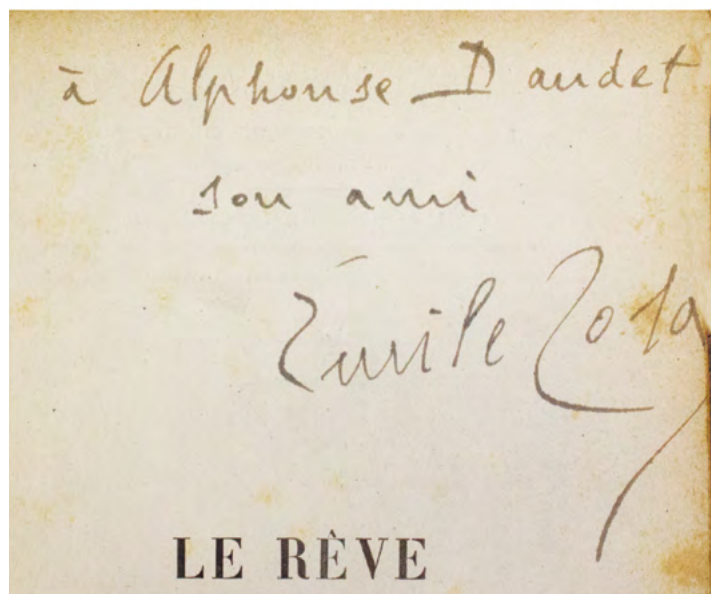 à Alphonse Daudet
son ami
Émile Zola
LE RÊVE